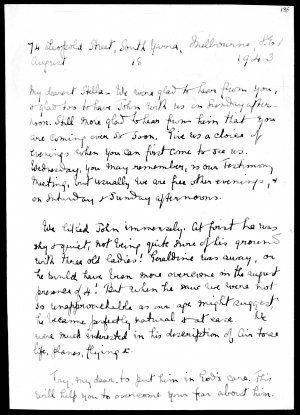 136
74 Leopold Street, South Yarra, Melbourne, S.E.1
August 18 1943
My dearest Stella - We were glad to hear from you,
& glad too to have John with us on Sunday after-
noon. Still more glad to hear from him that you
are coming over so soon. Give us a choice of
evenings when you can first come to see us.
Wednesday, you may remember, is our Testimony
Meeting, but usually we are free other evenings, &
on Saturday & Sunday afternoons.
We liked John immensely. At first he was
shy & quiet, not being quite sure of his ground
with three old ladies! Geraldine was away, or
he would have been more overcome in the august
presence of 4! But when he saw we were not
so unapproachable as our age might suggest
he became perfectly natural & at ease. We
were much interested in his description of Air Force
life, planes, flying &c.
Try, my dear, to put him in God's care. This
will help you to overcome your fear about him.